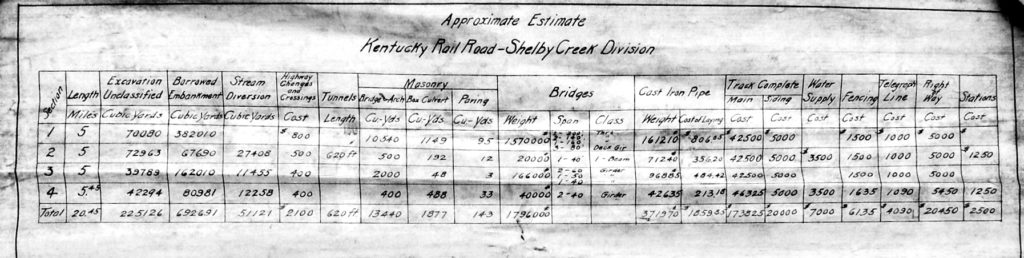 Approximate Estimate
Kentucky Rail Road - Shelby Creek Division
Section Length Excavation Unclassified Borrowed Embankment Stream Diversion Highway Changes and Crossings Tunnels Masonry Bridges Cast Iron Pipe Track Complete Water Supply Fencing Telegraph Line Right of Way Stations
Bridge & Arch Box Culvert Paving Main Siding
Miles Cubic Yards Cubic Yards Cubic Yards Cost Length Cu-Yds Cu-Yds Cu-Yds Weight Span Class Weight Cost of Laying Cost Cost Cost Cost Cost Cost Cost
1 5 70080 382010 $800 10540 1149 95 1570000 161210 $806.05 42500 5000 1500 1000 5000
2 5 72963 67690 27408 500 620ft 500 192 12 20000 1-40 1-Beam 71240 356.20 42500 5000 $3500 1500 1000 5000 $1250
3 5 39789 162010 11455 400 2000 48 3 166000 Girder 96885 484.42 42500 5000 1500 1000 5000
4 5.45 42294 80981 12258 400 400 488 33 40000 2-40 Girder 42635 213.18 46325 5000 3500 1635 1090 5450 1250
Total 20.45 225126 692691 51121 $2100 620ft 13440 1877 143 1796000 371970 $1859.85 $173825 $20000 $7000 $6135 $4090 $20450 $2500